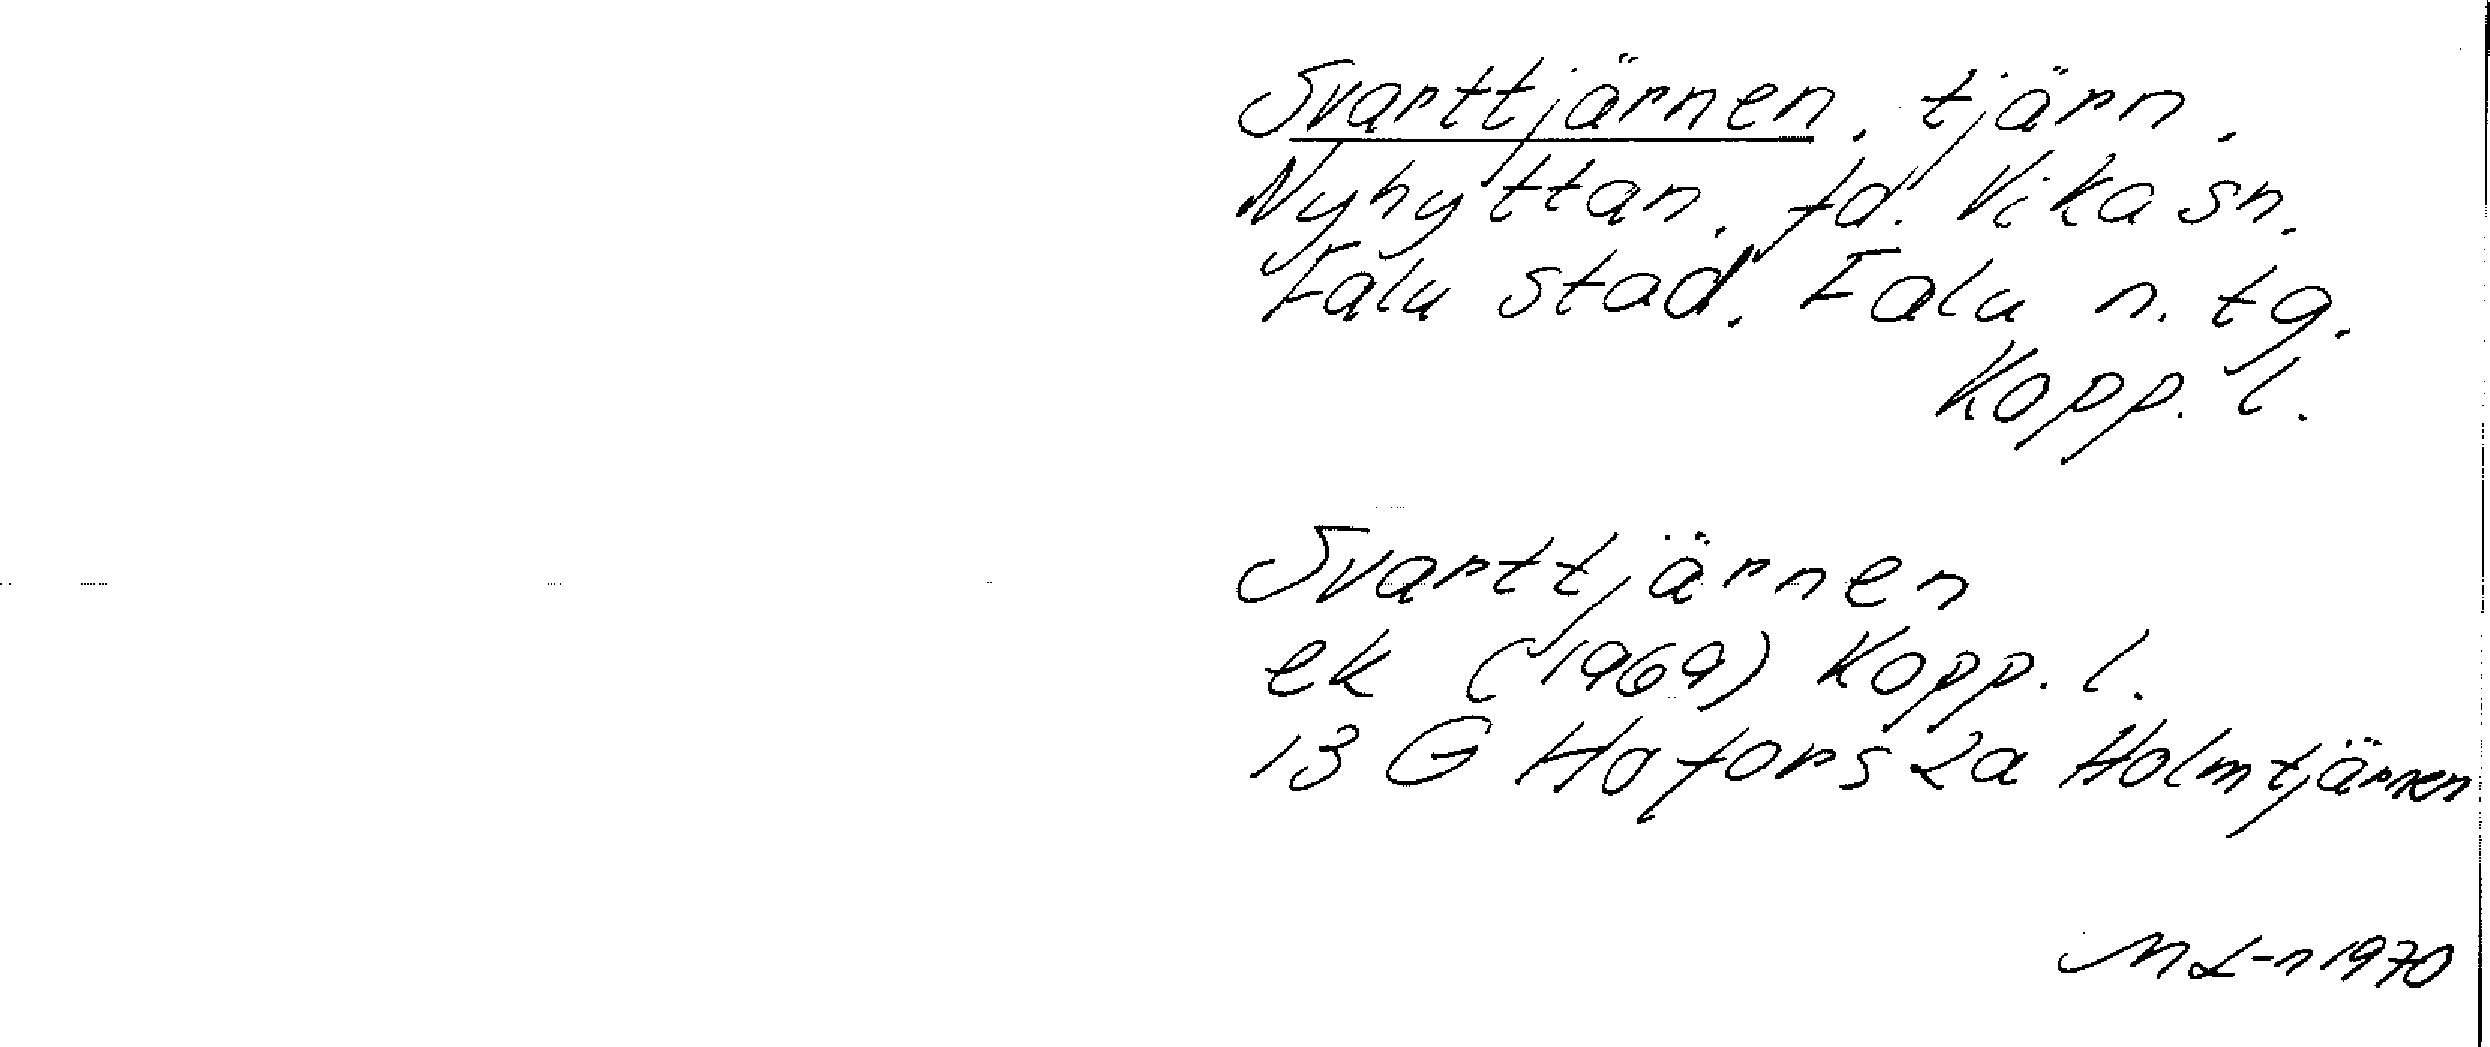 Svarttjärnen, tjärn,
Nyhyttan, fd. Vika sn.
Falu stad, Falu n. tg.
Kopp. l.
Svarttjärnen
ek (1969) Kopp. l.
13 G Hofors 2a Holmtjärnen
M L-n 1970